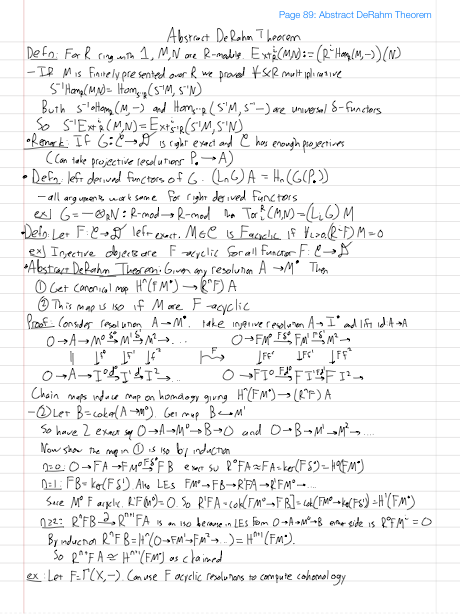 Page 89: Abstract DeRham Theorem
Abstract DeRham Theorem
Defn: For R ring with 1, M,N are R-module. Ext^i_R(M,N):=(R^i Hom_R(M,-))(N)
- If M is finitely presented over R we proved ∀ S⊂R multiplicative
S^-1 Hom_R(M,N) = Hom_{S^-1R}(S^-1M, S^-1N)
Both S^-1Hom_R(M,-) and Hom_{S^-1R}(S^-1M, S^-1-) are universal δ-functors
So S^-1Ext^i_R(M,N) = Ext^i_{S^-1R}(S^-1M, S^-1N)
• Remark: If G: C→D is right exact and C has enough projectives
(Can take projective resolutions P.→A)
• Defn: left derived functors of G. (L_nG)A = H_n(G(P.))
- all arguments work same for right derived functors
ex] G = -⊗_R N: R-mod→R-mod then Tor_i^R(M,N) = (L_iG)M
• Defn: Let F: C→D left exact. M∈C is F acyclic if ∀i>0, (R^iF)M=0
ex] Injective objects are F-acyclic for all functor F: C→D
• Abstract DeRham Theorem: Given any resolution A→M^• Then
① Get canonical map H^n(FM^•)→(R^nF)A
② This map is iso if M are F-acyclic
Proof: Consider resolution A→M^•. take injective resolution A→I^• and lift id:A→A
0→A→M^0 →δ^0 M^1 →δ^1 M^2→... 0→FM^0 →Fδ^0 FM^1 →Fδ^1 M^2→...
|| ↓f^0 ↓f^1 ↓f^2 F ↓Ff^0 ↓Ff^1 ↓Ff^2
0→A→I^0 →d^0 I^1 →d^1 I^2→... 0→FI^0 →Fd^0 FI^1 →Fd^1 FI^2→...
Chain maps induce map on homology giving H^n(FM^•)→(R^nF)A
- ② Let B=coker(A→M^0). Get map B↪M^1
So have 2 exact seq 0→A→M^0→B→0 and 0→B→M^1→M^2→...
Now show the map in ① is iso by induction
n=0: 0→FA→FM^0 →Fδ^0 FB exact so R^0FA≈FA=ker(Fδ^0)=H^0(FM^•)
n=1: FB=ker(Fδ^1) Also LES FM^0→FB→R^1FA→R^1FM^0→...
Since M^0 F acyclic, R^1F(M^0)=0. So R^1FA=coker[FM^0→FB]=coker(FM^0→ker(Fδ^1))=H^1(FM^•)
n≥2: R^nFB →∂ R^{n+1}FA is an iso because in LES from 0→A→M^0→B either side is R^nFM^0=0
By induction R^nFB=H^n(0→FM^1→FM^2→...)=H^{n+1}(FM^•).
So R^{n+1}FA≈H^{n+1}(FM^•) as claimed
ex: Let F=Γ(X,-). Can use F acyclic resolutions to compute cohomology